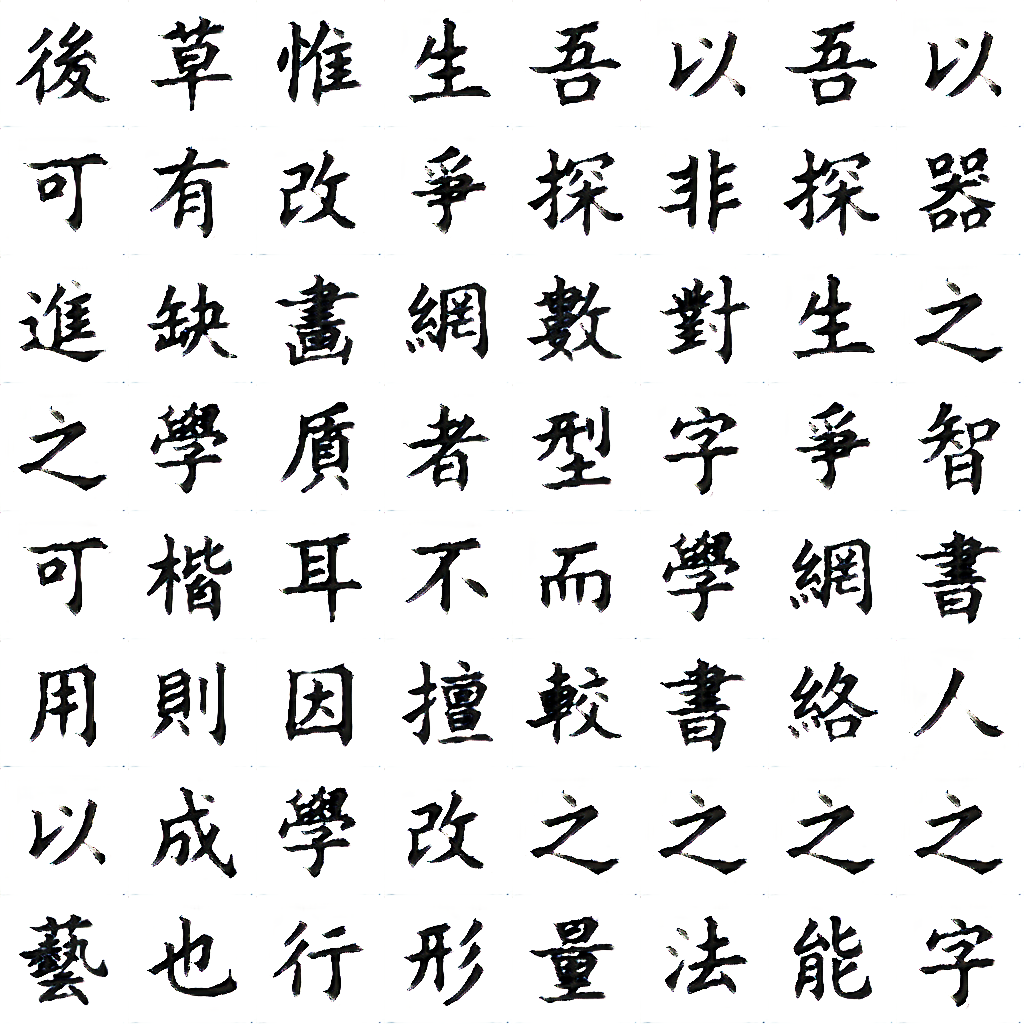 以器之智書人之字
吾探生爭網絡之能
以非對字學書之法
吾探數型而較之量
生爭網者不擅改形
惟改畫貭耳因學行
草有缺學楷則成也
後可進之可用以藝